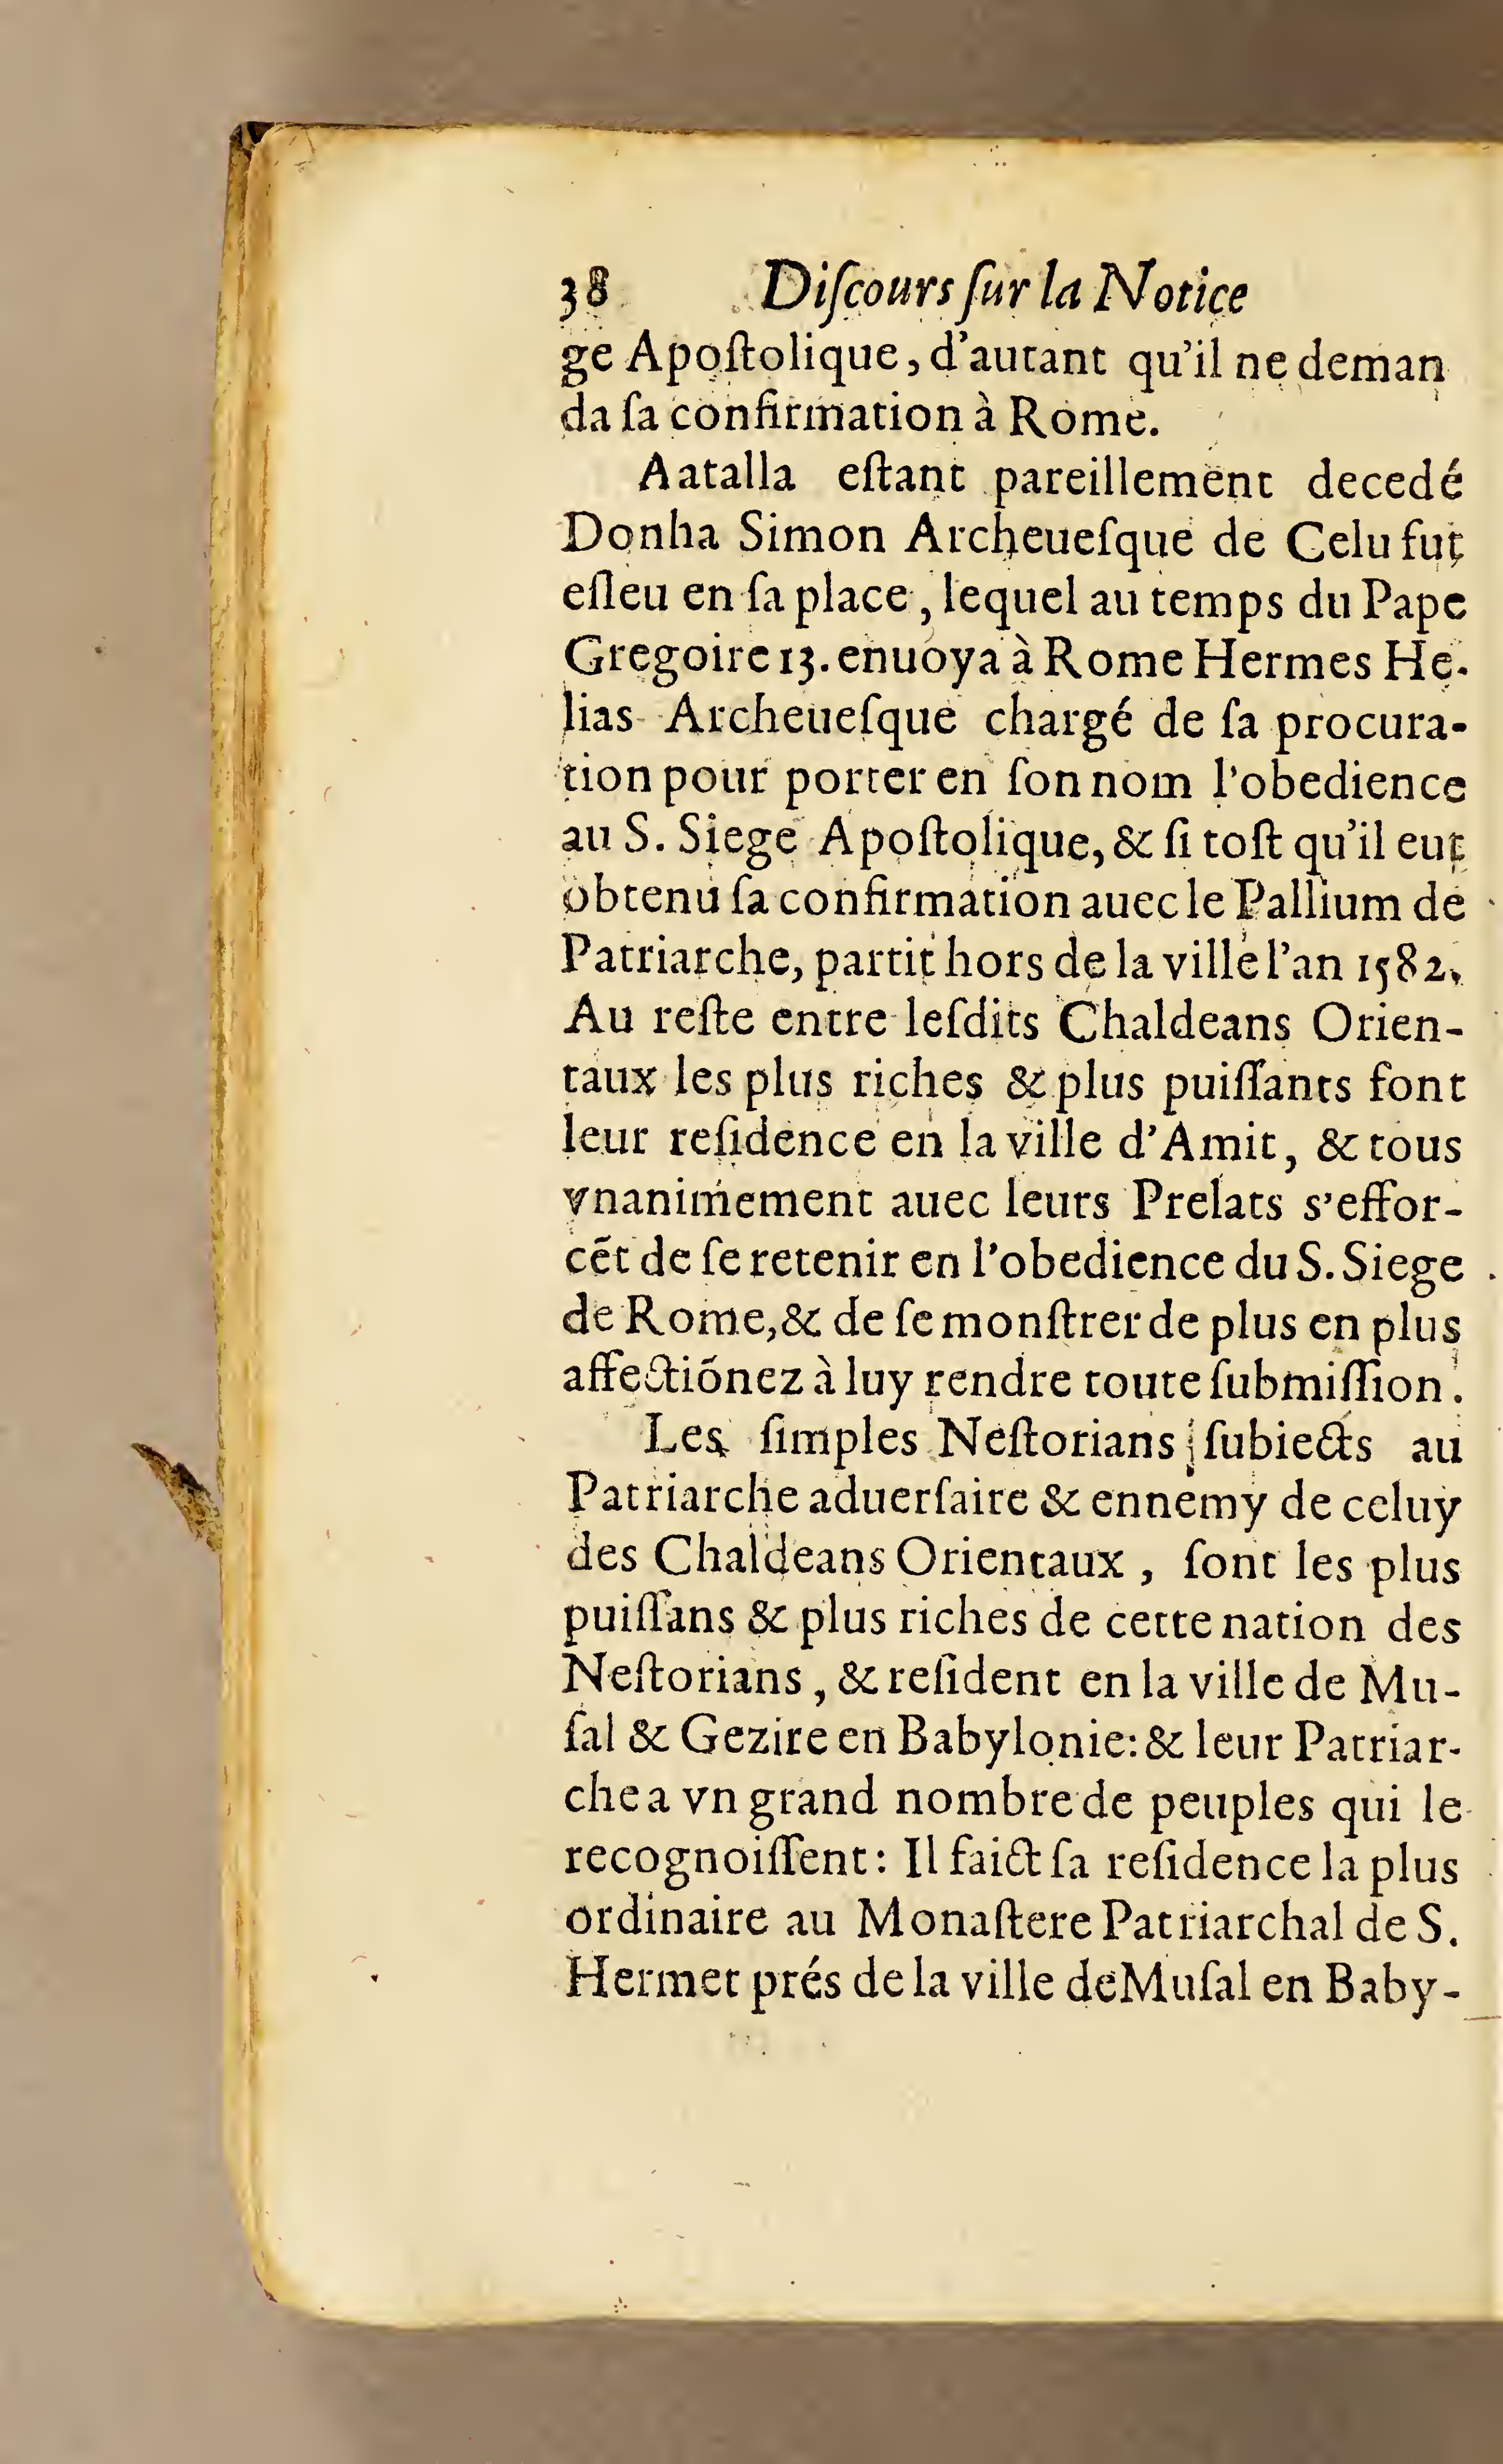 38 Diſcours ſur la Notice
ge Apoſtolique, d'autant qu'il ne deman
da ſa confirmation à Rome.
Aatalla eſtant pareillement decedé
Donha Simon Archeueſque de Celu fut
eſleu en ſa place, lequel au temps du Pape
Gregoire 13. enuoya à Rome Hermes He-
lias Archeueſque chargé de ſa procura-
tion pour porter en ſon nom l'obedience
au S. Siege Apoſtolique, & ſi toſt qu'il eut
obtenu ſa confirmation auec le Pallium de
Patriarche, partit hors de la ville l'an 1582.
Au reſte entre leſdits Chaldeans Orien-
taux les plus riches & plus puiſſants font
leur reſidence en la ville d'Amit, & tous
vnanimement auec leurs Prelats s'effor-
cēt de ſe retenir en l'obedience du S. Siege
de Rome, & de ſe monſtrer de plus en plus
affectiōnez à luy rendre toute ſubmiſſion.
Les ſimples Neſtorians ſubiects au
Patriarche aduerſaire & ennemy de celuy
des Chaldeans Orientaux, ſont les plus
puiſſans & plus riches de cette nation des
Neſtorians, & reſident en la ville de Mu-
ſal & Gezire en Babylonie: & leur Patriar-
che a vn grand nombre de peuples qui le
recognoiſſent: Il faict ſa reſidence la plus
ordinaire au Monaſtere Patriarchal de S.
Hermet prés de la ville de Muſal en Baby-